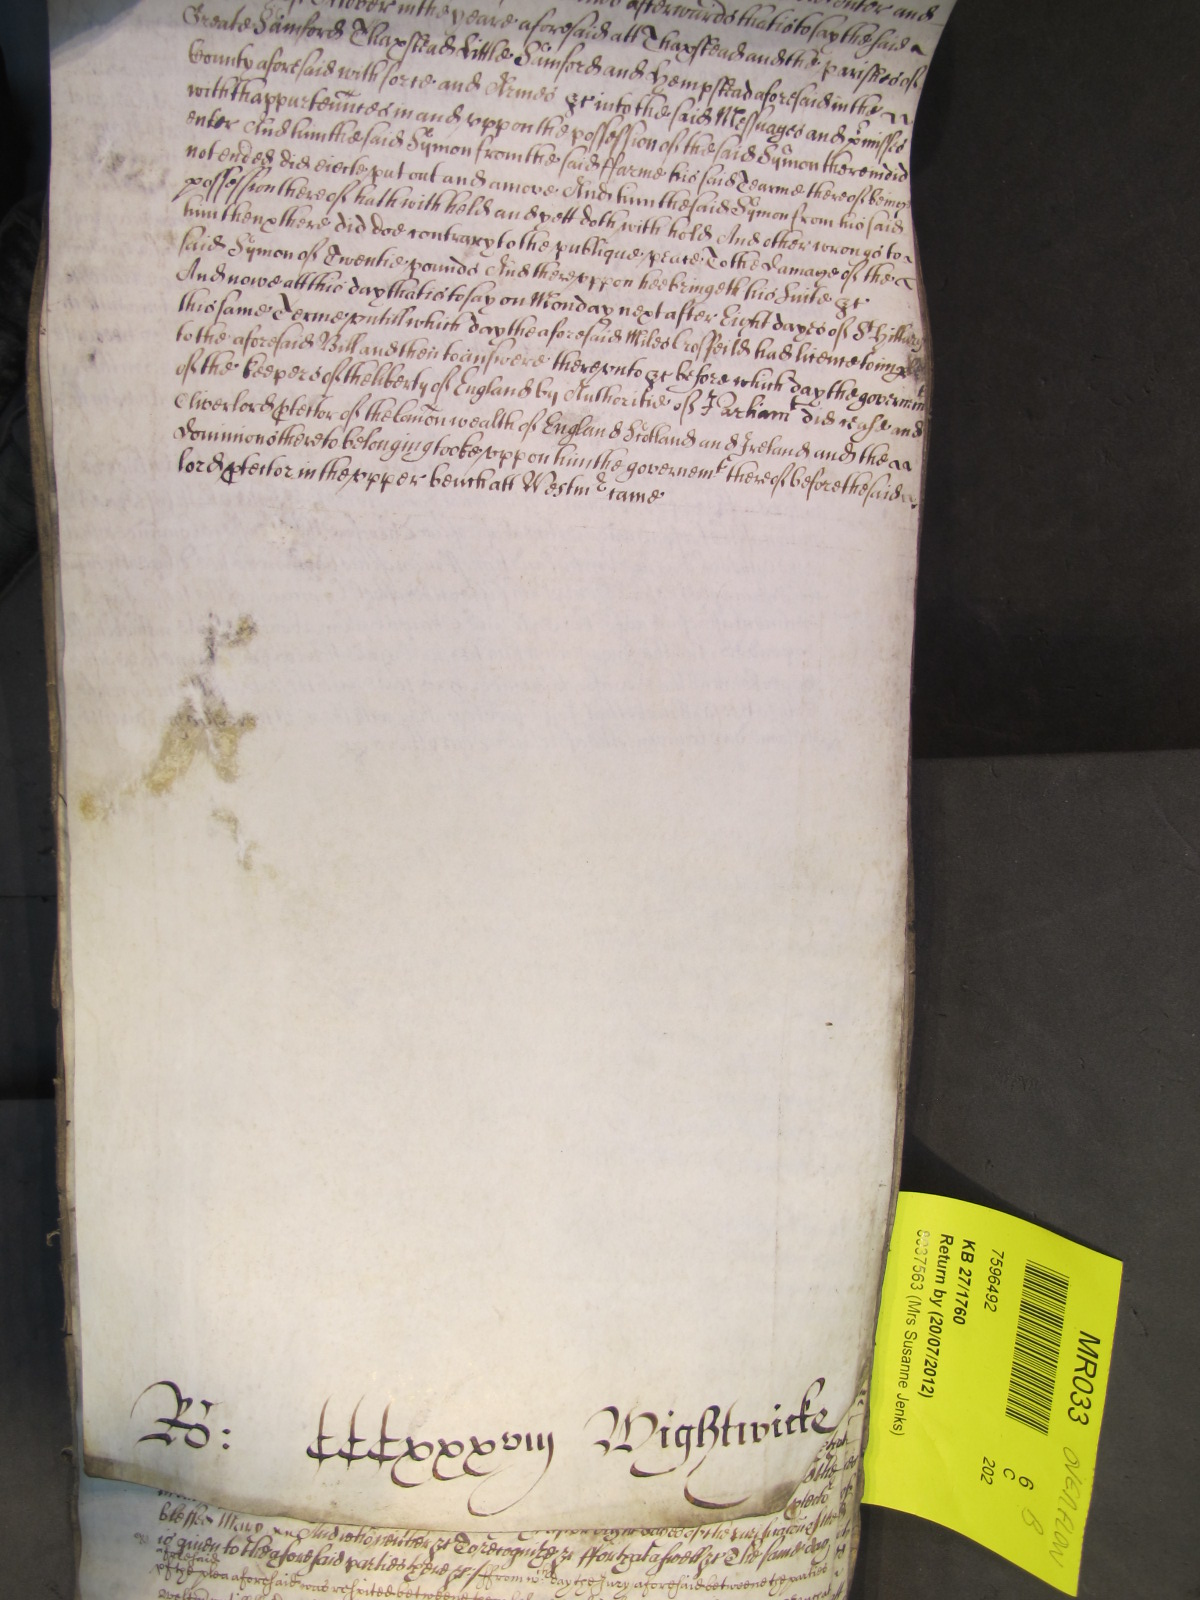 of October in the yeare aforesaid att Thaxstead and the parishes of
Greate Samford Thaxstead Little Samford and Hempstead aforesaid in the
County aforesaid with force and Armes &c into the said Messuages and pmisses
with thappurtennces in and vppon the possession of the said Symon therein did
enter And him the said Symon from the said ffarme his said Tearme thereof being
not ended did eiecte put out and amove And him the said Symon from his said
possession thereof hath with held and yett doth with hold And other wrongs to
him then & there did doe contrary to the publique peace To the damage of the
said Symon of Twentie pounds And therevppon hee bringeth his Suite &c
And nowe att this day that is to say on Monday next after Eight dayes of St Hillary
this same Terme vntill which day the aforesaid Miles Crosfeild had licence to imple
to the aforesaid Bill and then to answere therevnto &c before which day the governmt
of the keepers of the liberty of England by Authoritie of Parliamt did cease and
Oliver lord ptector of the Comon wealth of England Scotland and Ireland and the
dominions thereto belonging tooke vppon him the governemt thereof before the said
lord ptector in the vpper bench att Westmr came
Ro: CCCxxxviij Wightwicke
is given to the aforesaid parties there &c
aforesaid
of the plea aforesaid was respited betweene the
MR033
OVERFLOW
6
C
8
202
7596492
KB 27/1760
Return by (20/07/2012)
0037563 (Mrs Susanne Jenks)